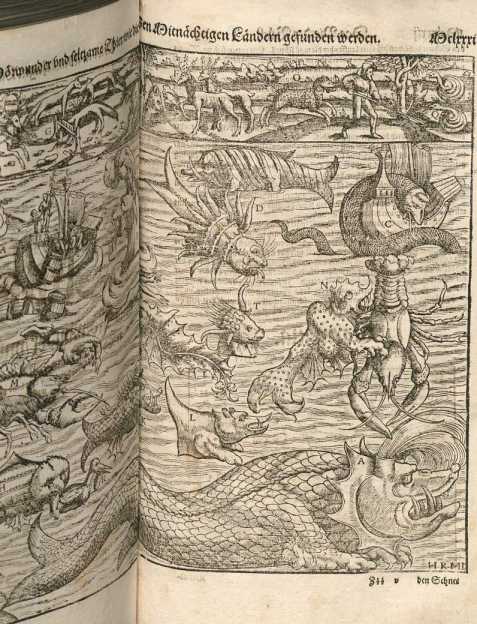 Mörwunder vnd seltzame Thier wie die
in den Mitnächtigen Ländern gefunden werden. Mclxxxi
O
D
C
N
T
I
M
A
HRMD
v den Schnee